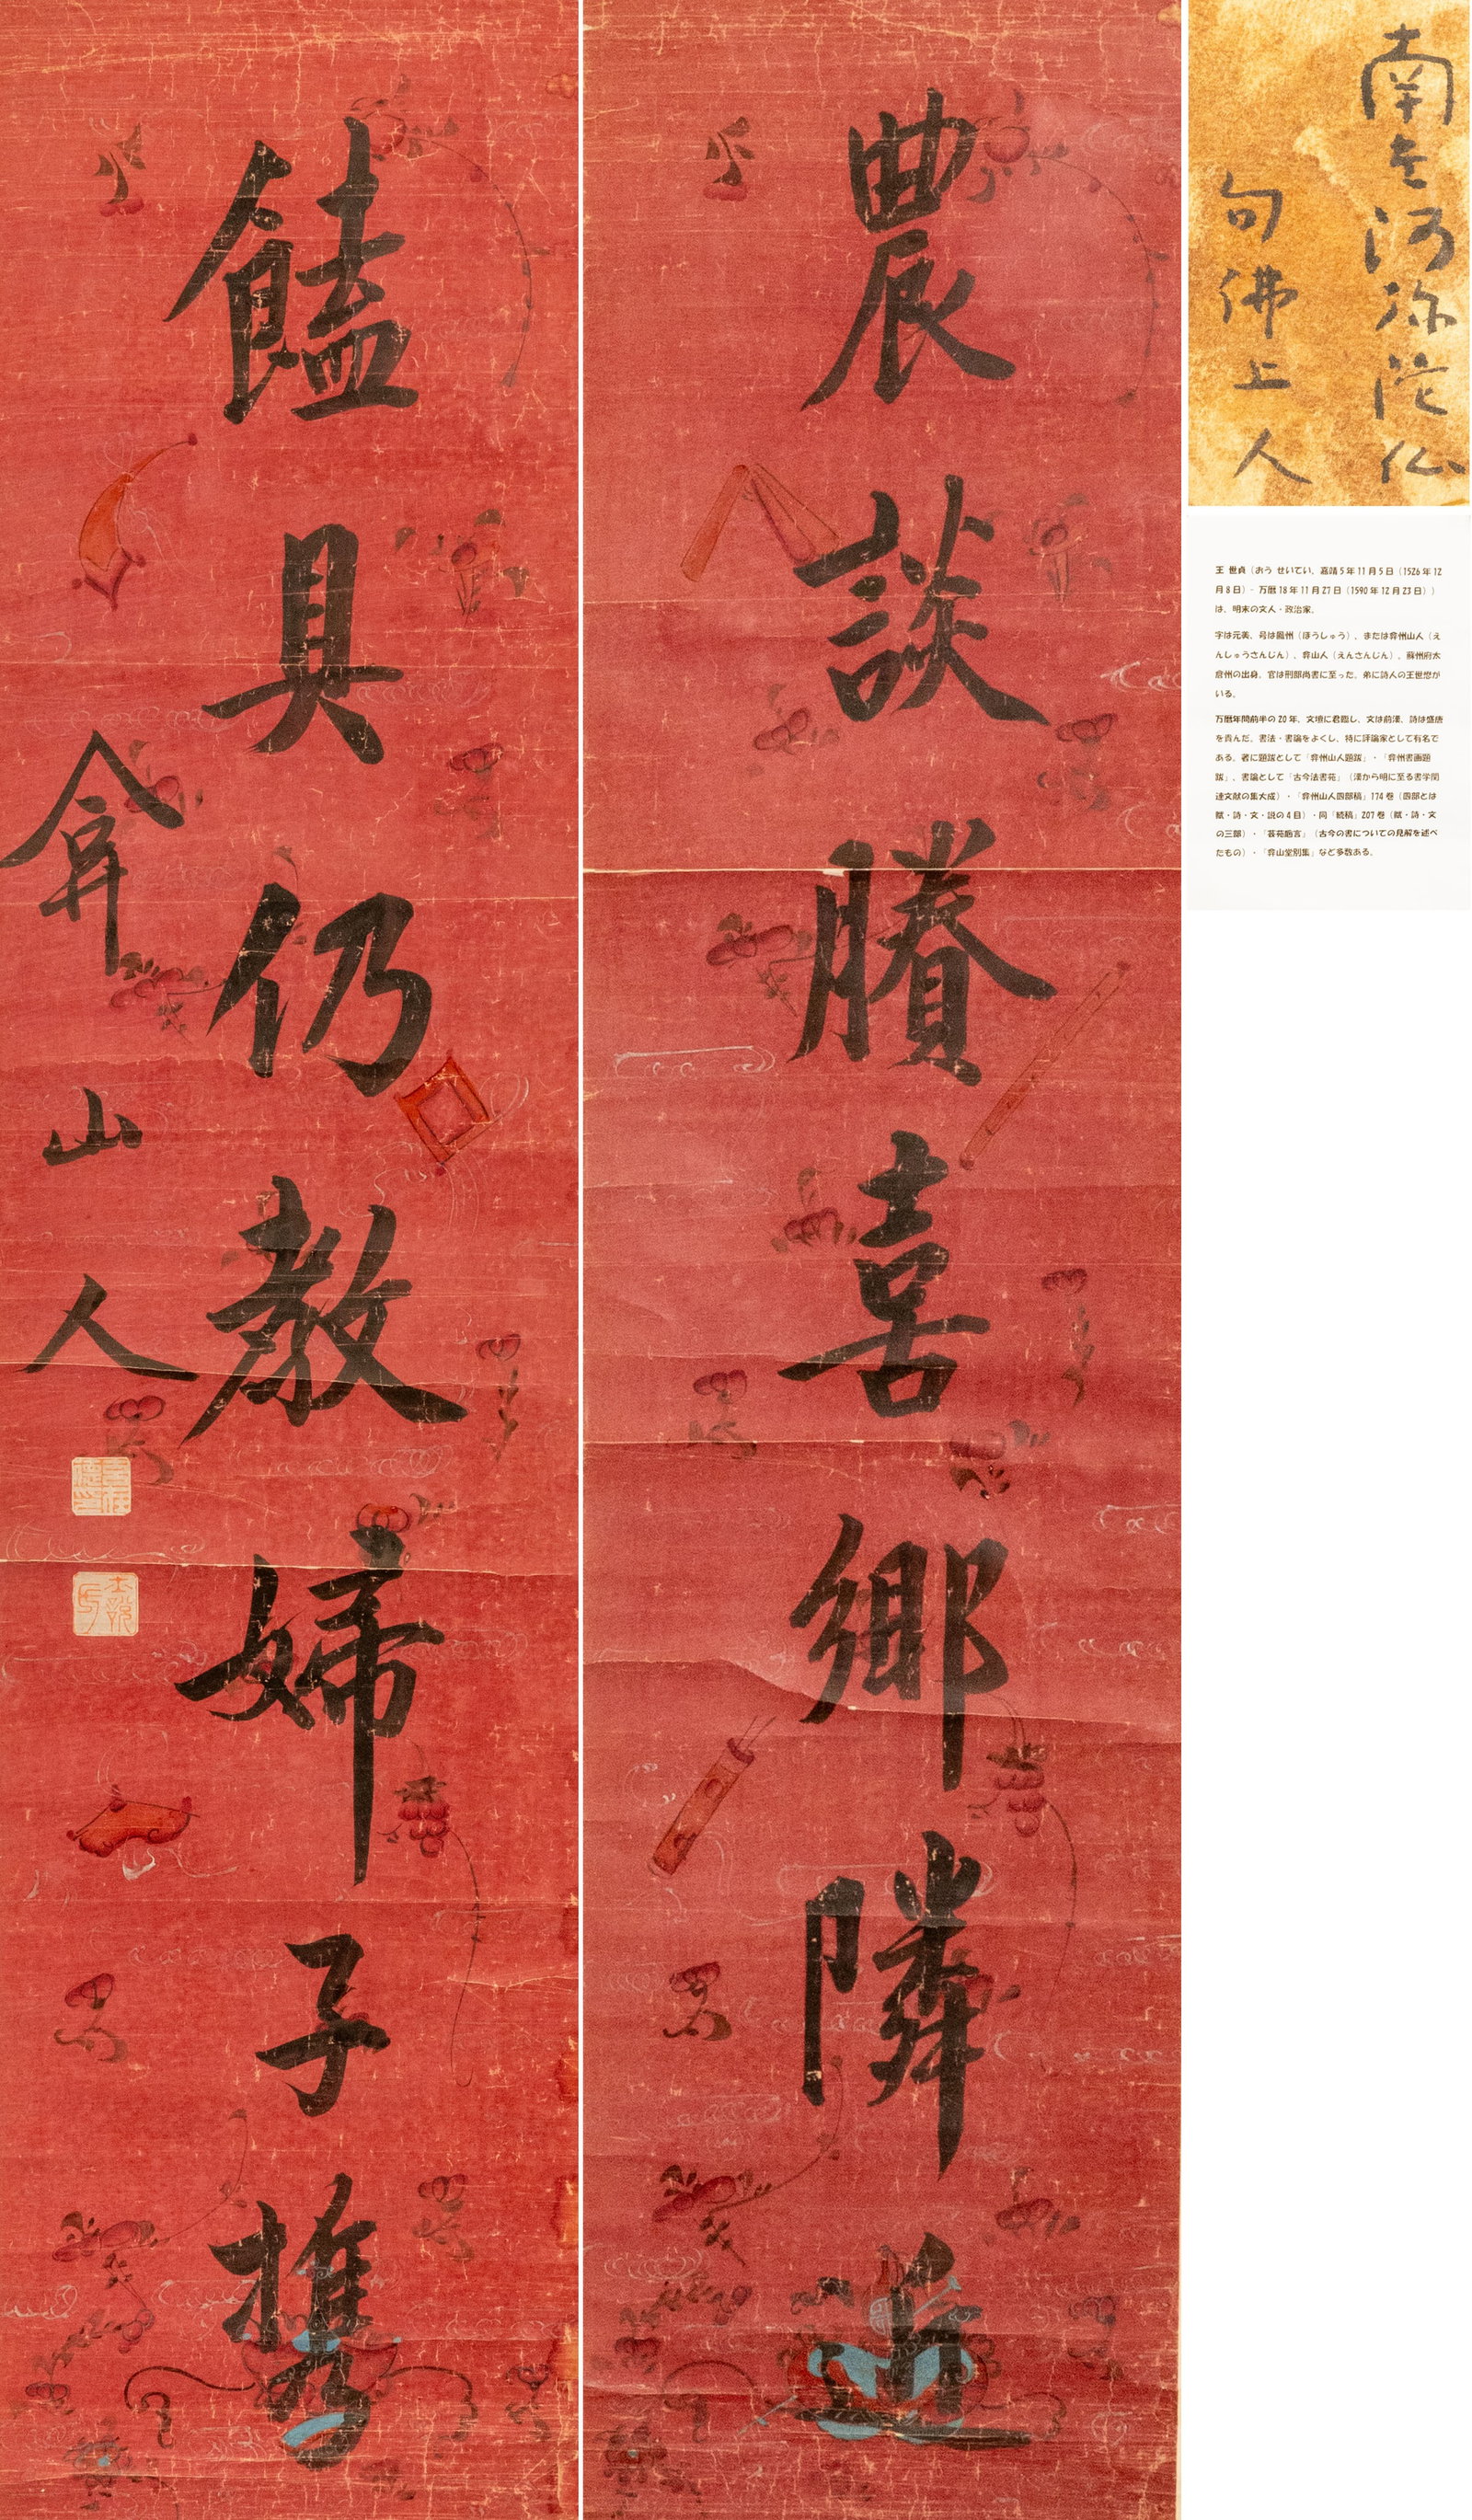 南无阿弥陀仏
句佛上人
王 世貞（おう せいてい、嘉靖5年11月5日（1526年12
月8日）- 万暦18年11月27日（1590年12月23日））
は、明末の文人・政治家。
字は元美、号は鳳州（ほうしゅう）、または弇州山人（え
んしゅうさんじん）、弇山人（えんさんじん）、蘇州府太
倉州の出身。官は刑部尚書に至った。弟に詩人の王世懋が
いる。
万暦年間前半の20年、文壇に君臨し、文は前漢、詩は盛唐
を貴んだ。書法・書論をよくし、特に評論家として有名で
ある。著に題跋として「弇州山人題跋」・「弇州書画題
跋」、書論として「古今法書苑」（漢から明に至る書学関
連文献の集大成）・「弇州山人四部稿」174巻（四部とは
賦・詩・文・説の4目）・同「続稿」207巻（賦・詩・文
の三部）・「芸苑巵言」（古今の書についての見解を述べ
たもの）・「弇山堂別集」など多数ある。
農談賸喜鄉隣近
饁具仍教婦子携
弇山人